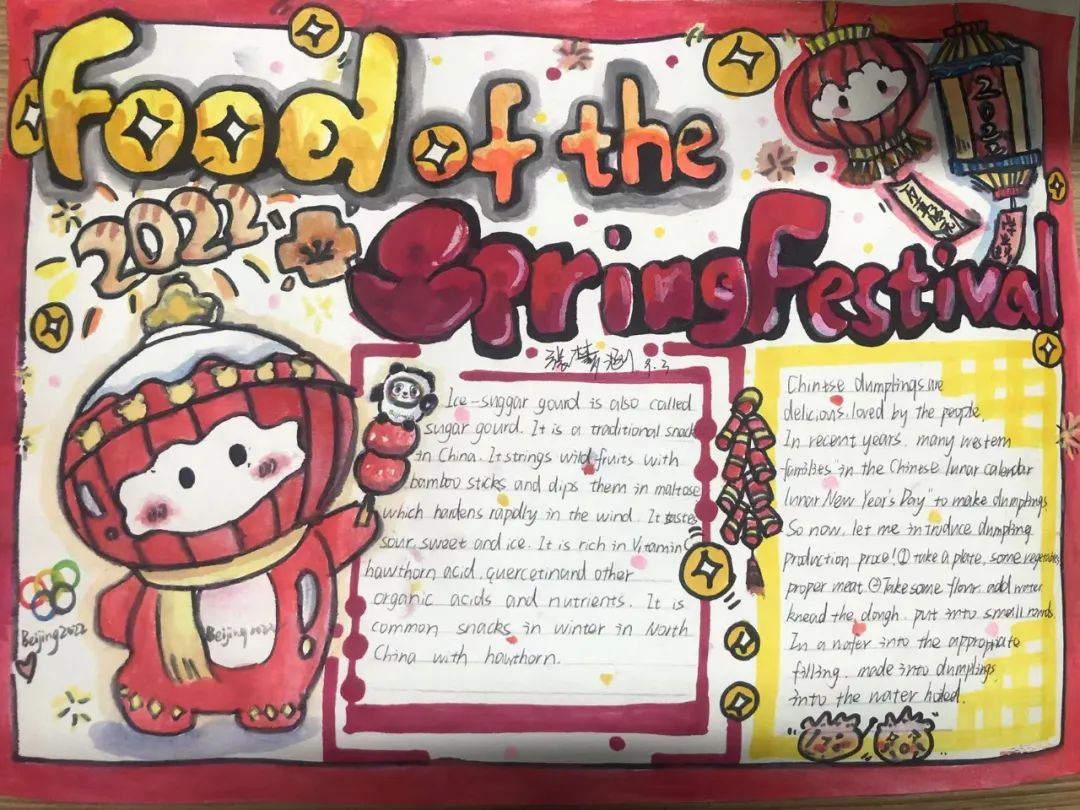 food of the
Spring Festival
2022
2022
张梦涵 8.3
Ice-suggar gourd is also called
sugar gourd. It is a traditional snack
in China. It strings wild fruits with
bamboo sticks and dips them in maltose
which hardens rapdly in the wind. It tastes
sour, sweet and ice. It is rich in Vitamin
hawthorn acid, quercetinand other
organic acids and nutrients. It is
common snacks in winter in North
China with hawthorn.
Chinese dumplings are
delicious, loved by the people.
In recent years, many western
families "in the Chinese lunar calendar
lunar New Year's Day" to make dumplings
So now, let me introduce dumpling
production proce! ① take a plate, some vegetables
proper meat. ② Take some flour, add water
knead the dough, put into small rounds.
In a wafer into the appropriate
filling, made into dumplings
into the water
Beijing 2022
Beijing 2022